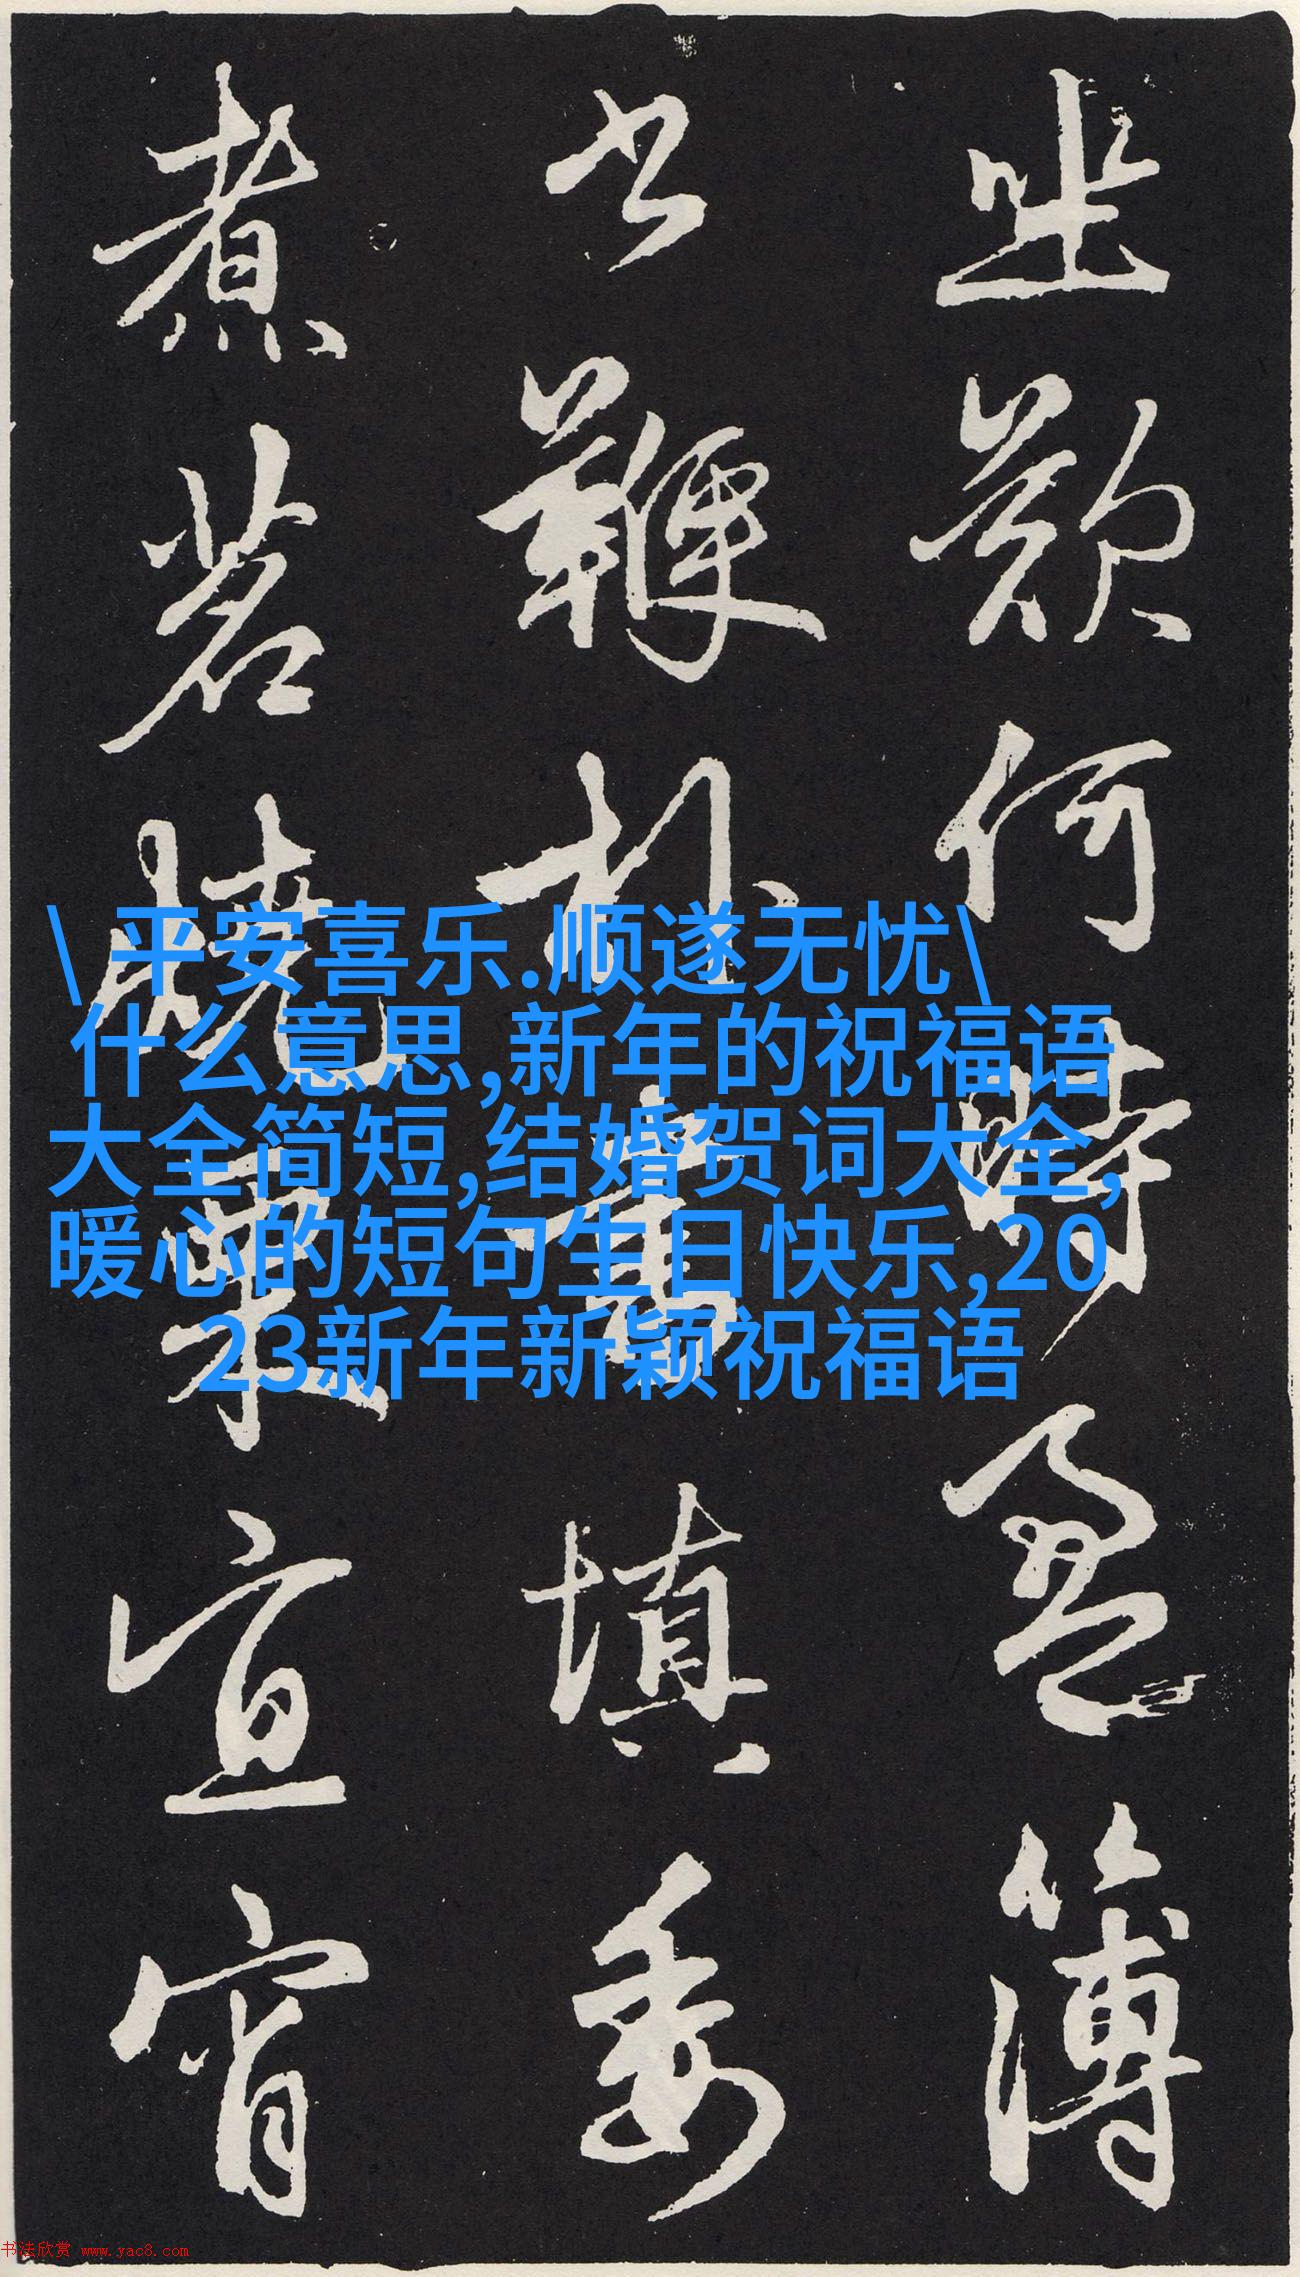 欲何時盈簿
書鞭扑晝填委
煮茗燒栗宜宵
\ 平安喜乐.顺遂无忧\
什么意思,新年的祝福语
大全简短,结婚贺词大全,
暖心的短句生日快乐,20
23新年新颖祝福语
书法欣赏 www.yac8.com